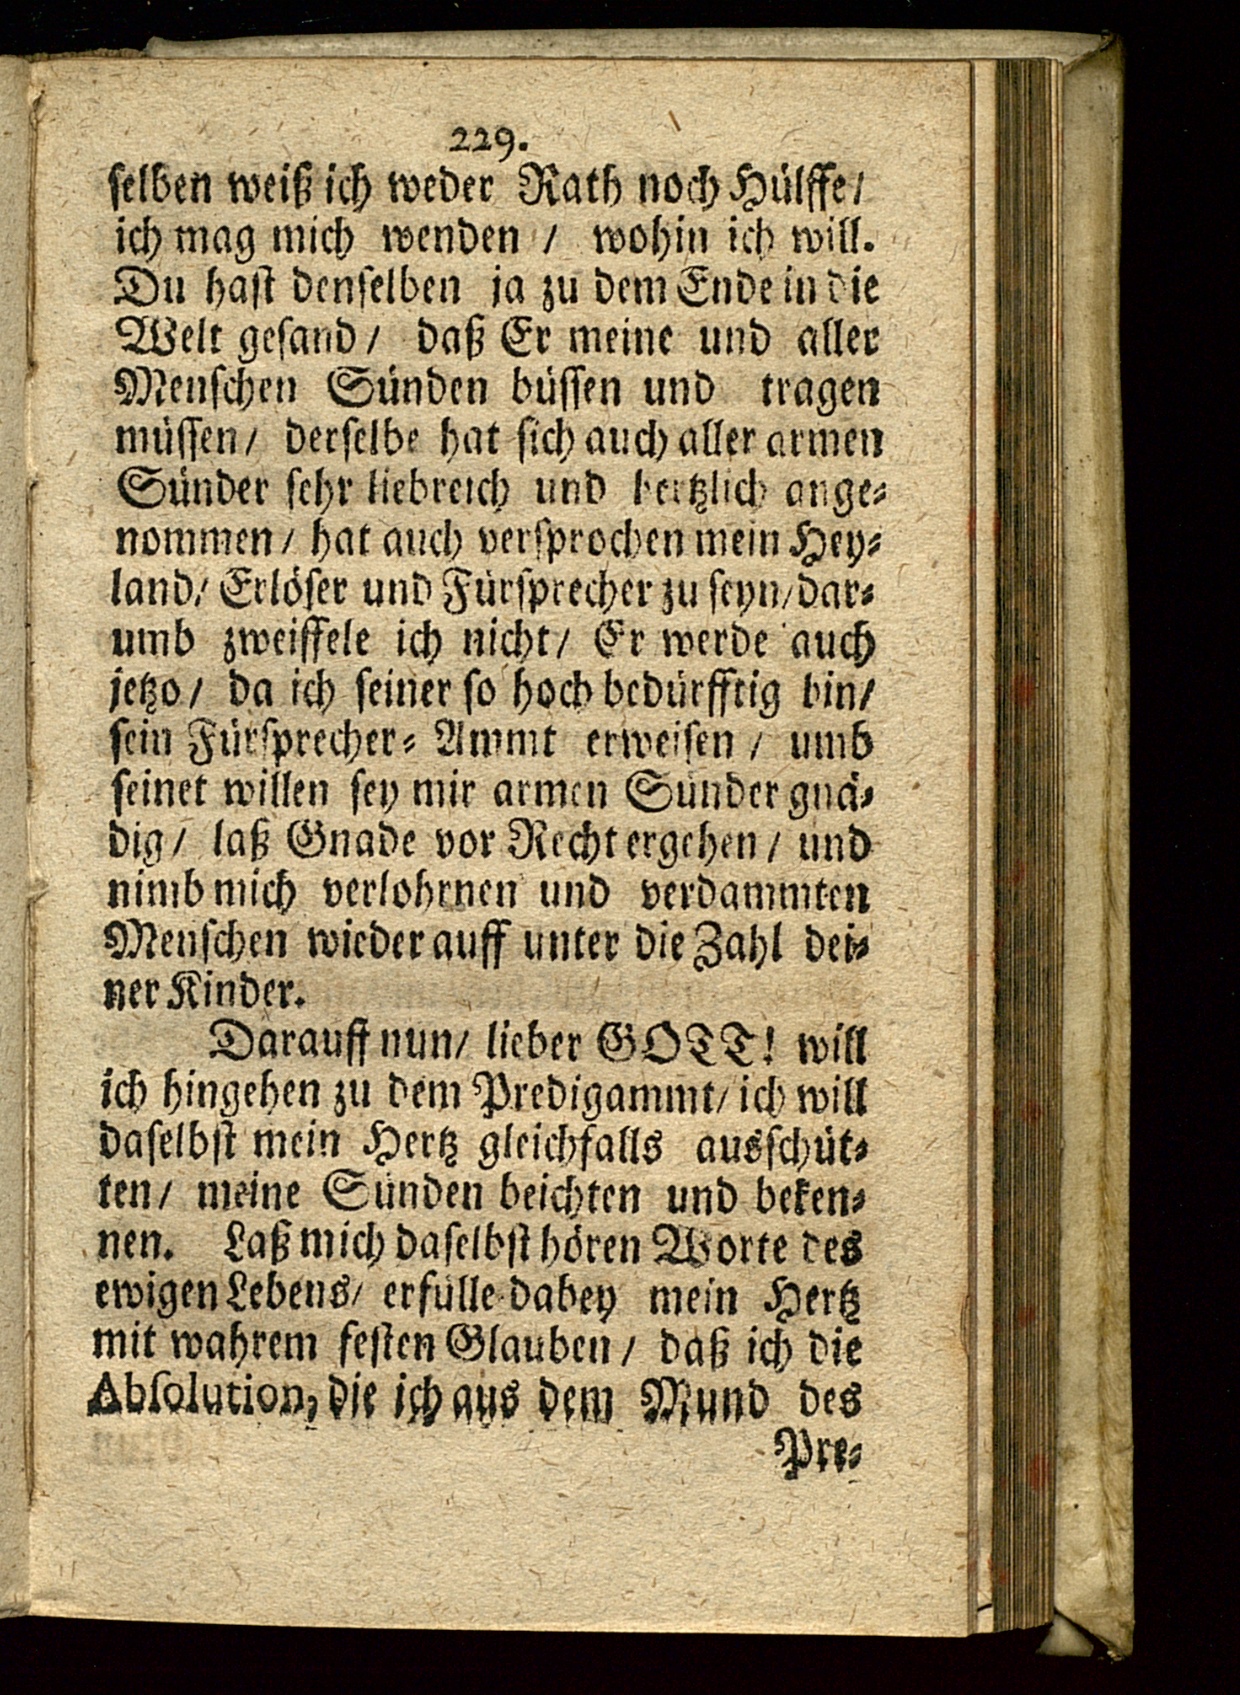 229.
selben weiß ich weder Rath noch Hülffe/
ich mag mich wenden / wohin ich will.
Du hast denselben ja zu dem Ende in die
Welt gesand/ daß Er meine und aller
Menschen Sünden büssen und tragen
müssen/ derselbe hat sich auch aller armen
Sünder sehr liebreich und hertzlich ange-
nommen/ hat auch versprochen mein Hey-
land/ Erlöser und Fürsprecher zu seyn/ dar-
umb zweiffele ich nicht/ Er werde auch
jetzo/ da ich seiner so hoch bedürfftig bin/
sein Fürsprecher-Ammt erweisen / umb
seinet willen sey mir armen Sünder gnä-
dig/ laß Gnade vor Recht ergehen/ und
nimb mich verlohrnen und verdammten
Menschen wieder auff unter die Zahl dei-
ner Kinder.
Darauff nun/ lieber GOTT! will
ich hingehen zu dem Predigammt/ ich will
daselbst mein Hertz gleichfalls ausschüt-
ten/ meine Sünden beichten und beken-
nen. Laß mich daselbst hören Worte des
ewigen Lebens/ erfülle dabey mein Hertz
mit wahrem festen Glauben/ daß ich die
Absolution, die ich aus dem Mund des
Pre-